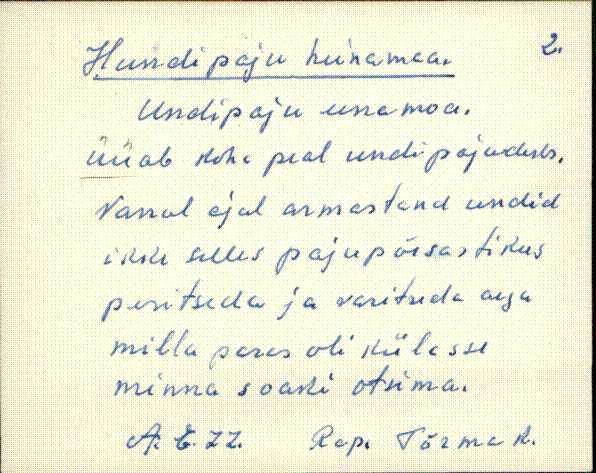 Hundipaju heinamaa.
2.
Undipaju einamoa.
üüab koha peal undipajudeks.
Vanal ajal armastand undid
ikke selles pajupõõsastikus
peritseda ja varitseda aega
milla paras oli külasse
minna soaki otsima.
A. E. 22. Rap. Tõrma k.